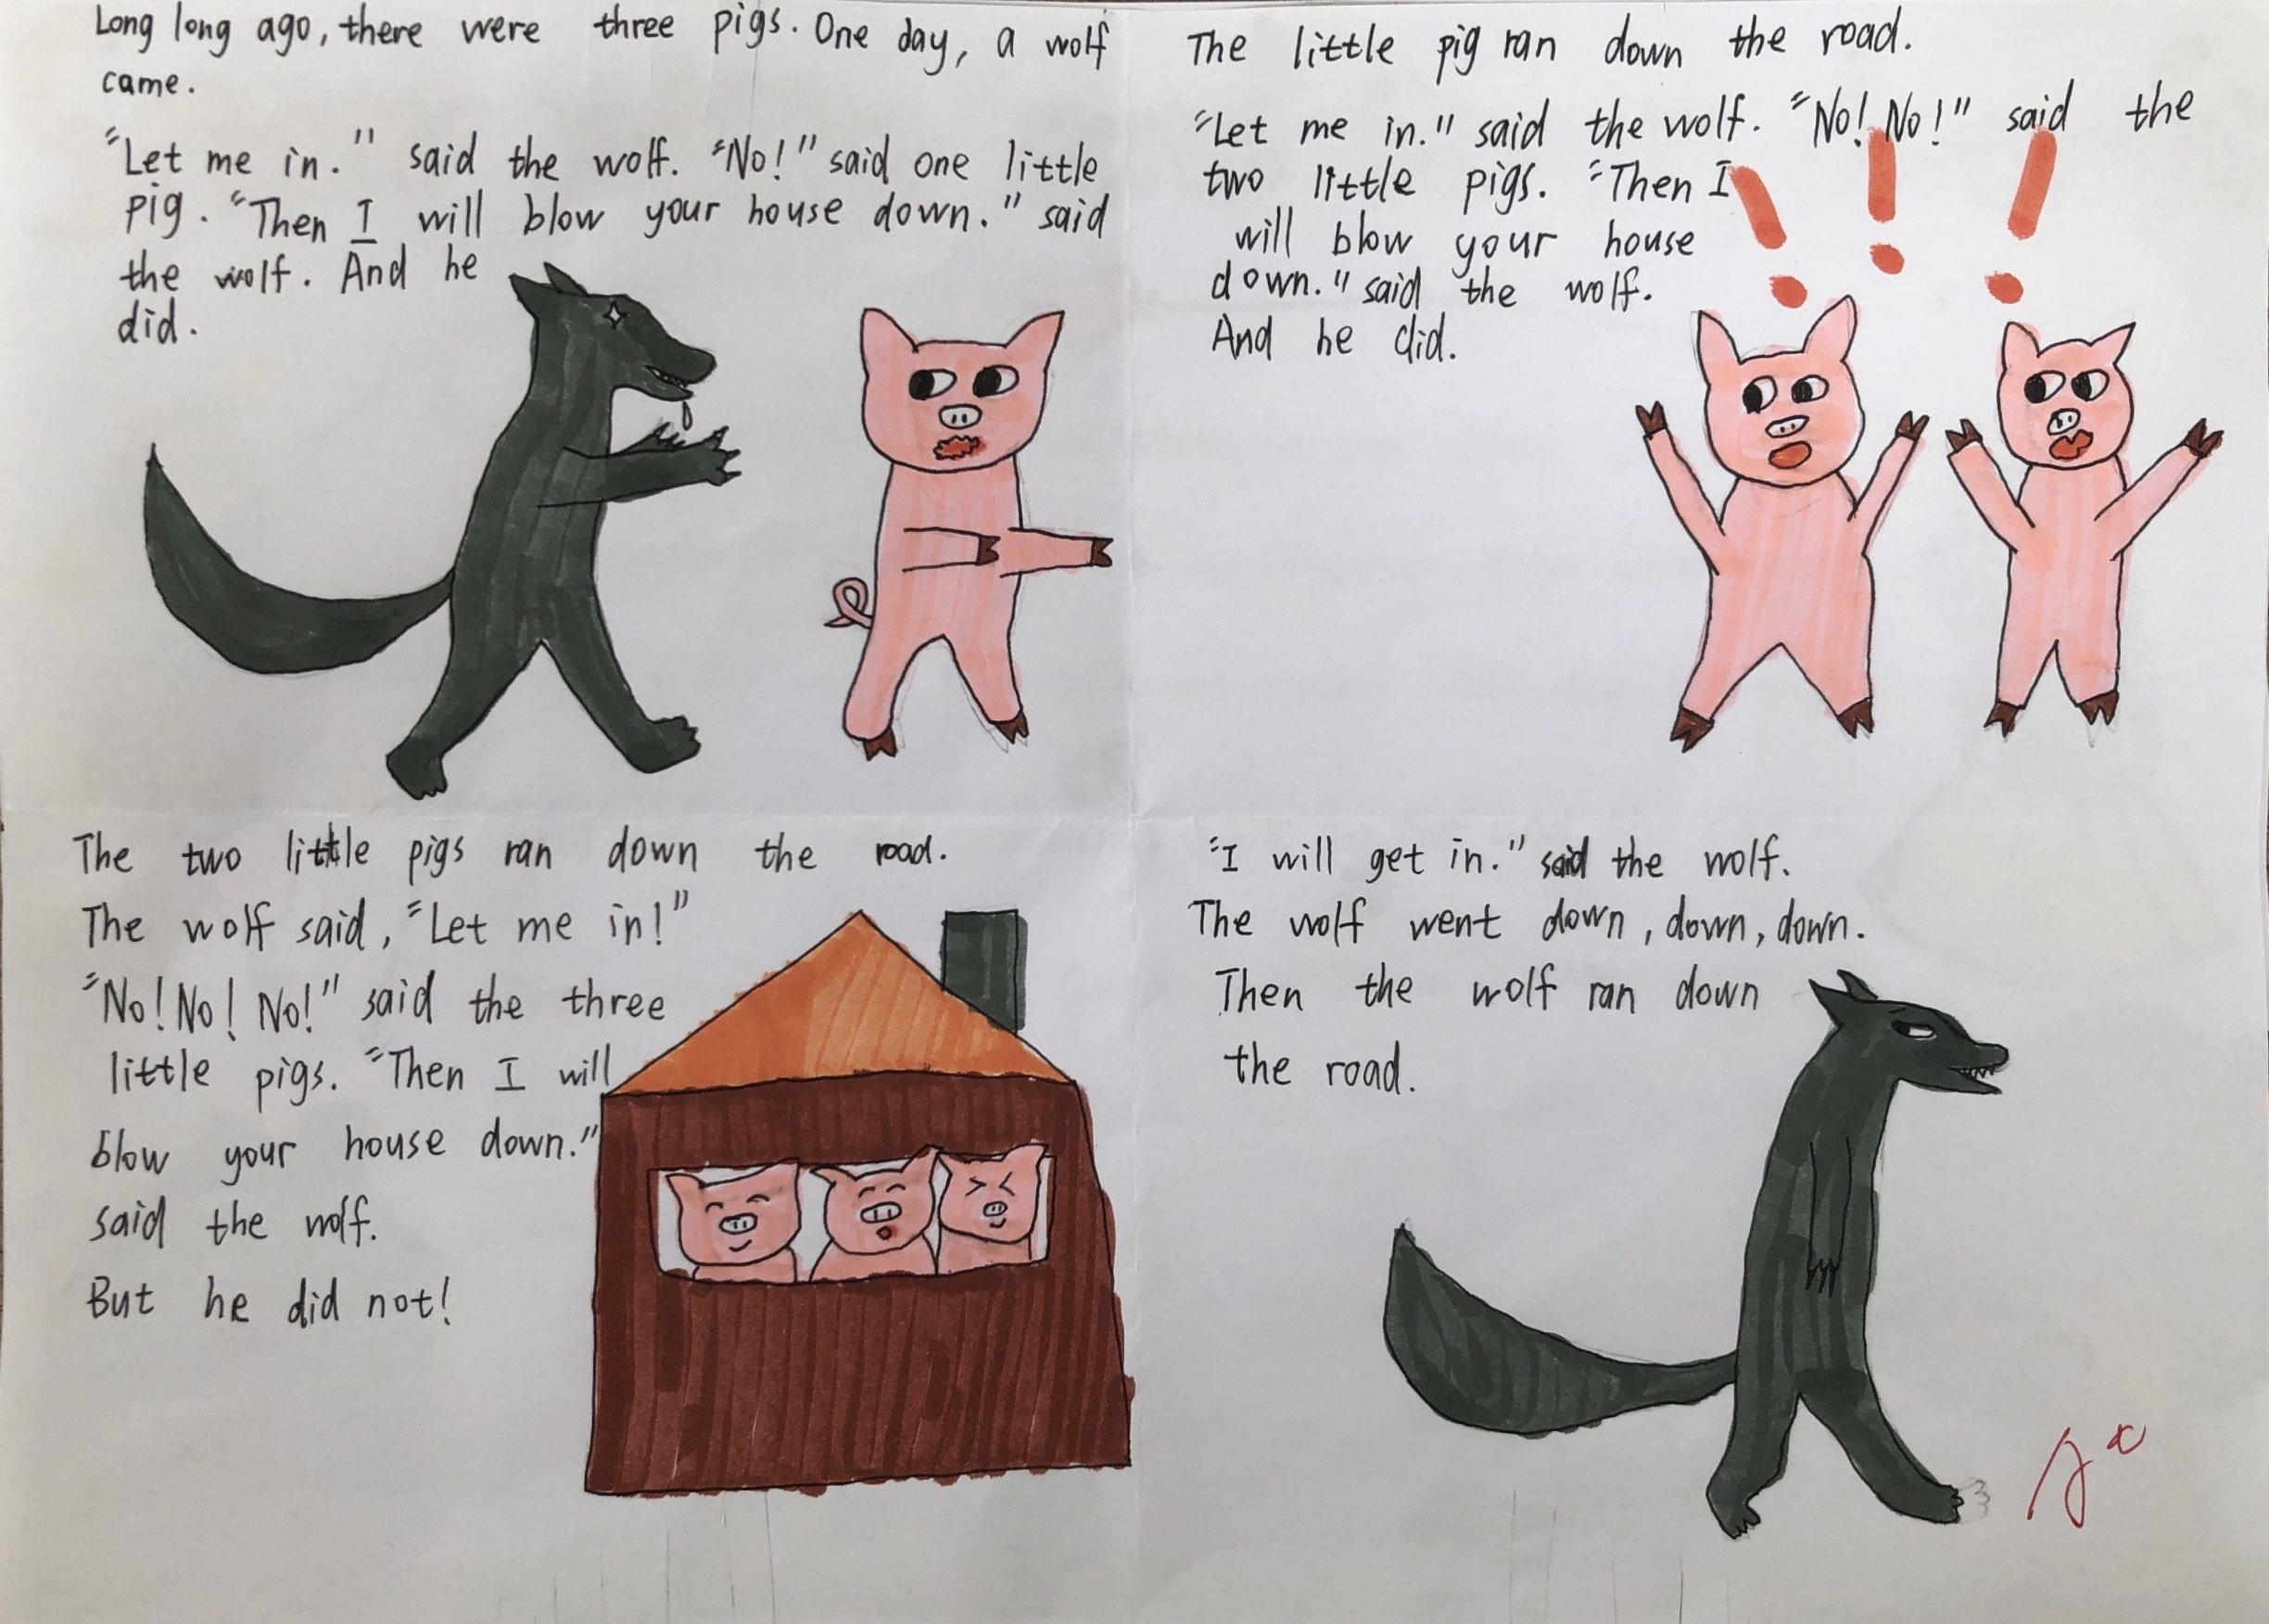 Long long ago, there were three pigs. One day, a wolf
came.
"Let me in." said the wolf. "No!" said one little
pig. "Then I will blow your house down." said
the wolf. And he
did.
The little pig ran down the road.
"Let me in." said the wolf. "No! No!" said the
two little pigs. "Then I
will blow your house
down." said the wolf.
And he did.
The two little pigs ran down the road.
The wolf said, "Let me in!"
"No! No! No!" said the three
little pigs. "Then I will
blow your house down."
said the wolf.
But he did not!
"I will get in." said the wolf.
The wolf went down, down, down.
Then the wolf ran down
the road.